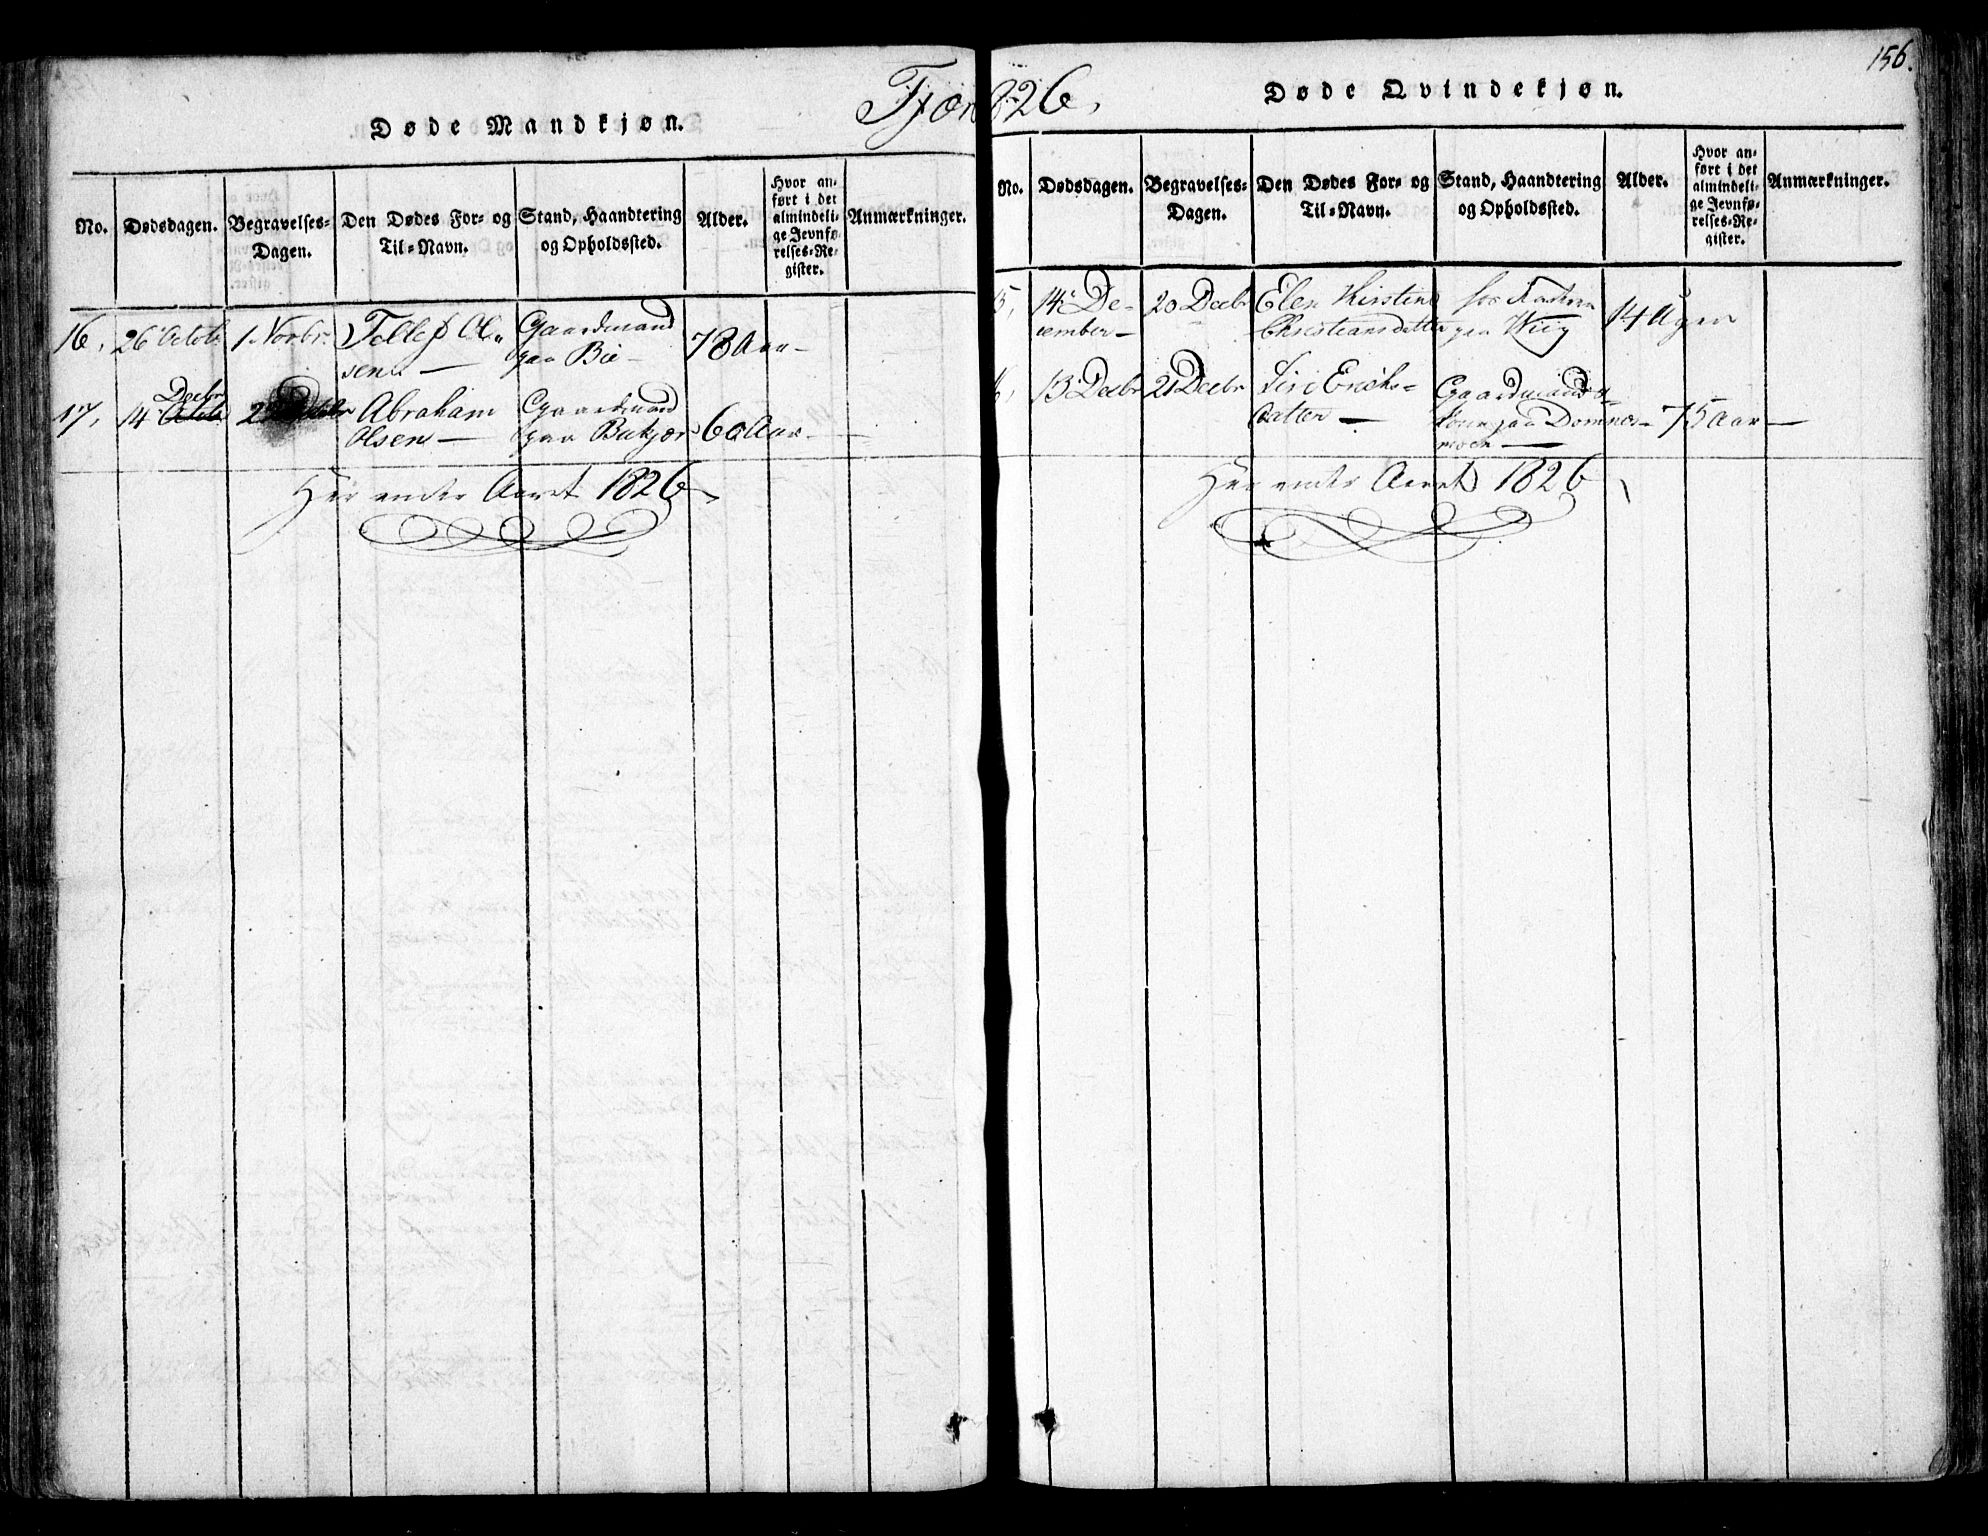 156.
Fjær 826.
Døde Mandkjøn.
No. Dødsdagen. Begravelses-Dagen. Den Dødes For- og Til-Navn. Stand, Haandtering og Opholdssted. Alder. Hvor anført i det almindelige Jevnførelses-Register. Anmærkninger.
16, 26 Octob 1 Novbr. Tellef Ol-
sen — Gaardmand
paa Bie — 78 Aar —
Decbr
17, 14 Octob Abraham
Olsen — Gaardmand
paa 60 Aar —
Her ender Aaret 1826
Døde Qvindekjøn.
No. Dødsdagen. Begravelses-Dagen. Den Dødes For- og Til-Navn. Stand, Haandtering og Opholdssted. Alder. Hvor anført i det almindelige Jevnførelses-Register. Anmærkninger.
5, 14 De-
cember — 20 Decbr Elen Kirstine
Christiansdatter paa Wiig 14 Uger
6, 13 Decbr 21 Decbr Siri Erichs-
datter — Gaardmands-
kone paa Dommes-
moen — 75 Aar —
Her ender Aaret 1826